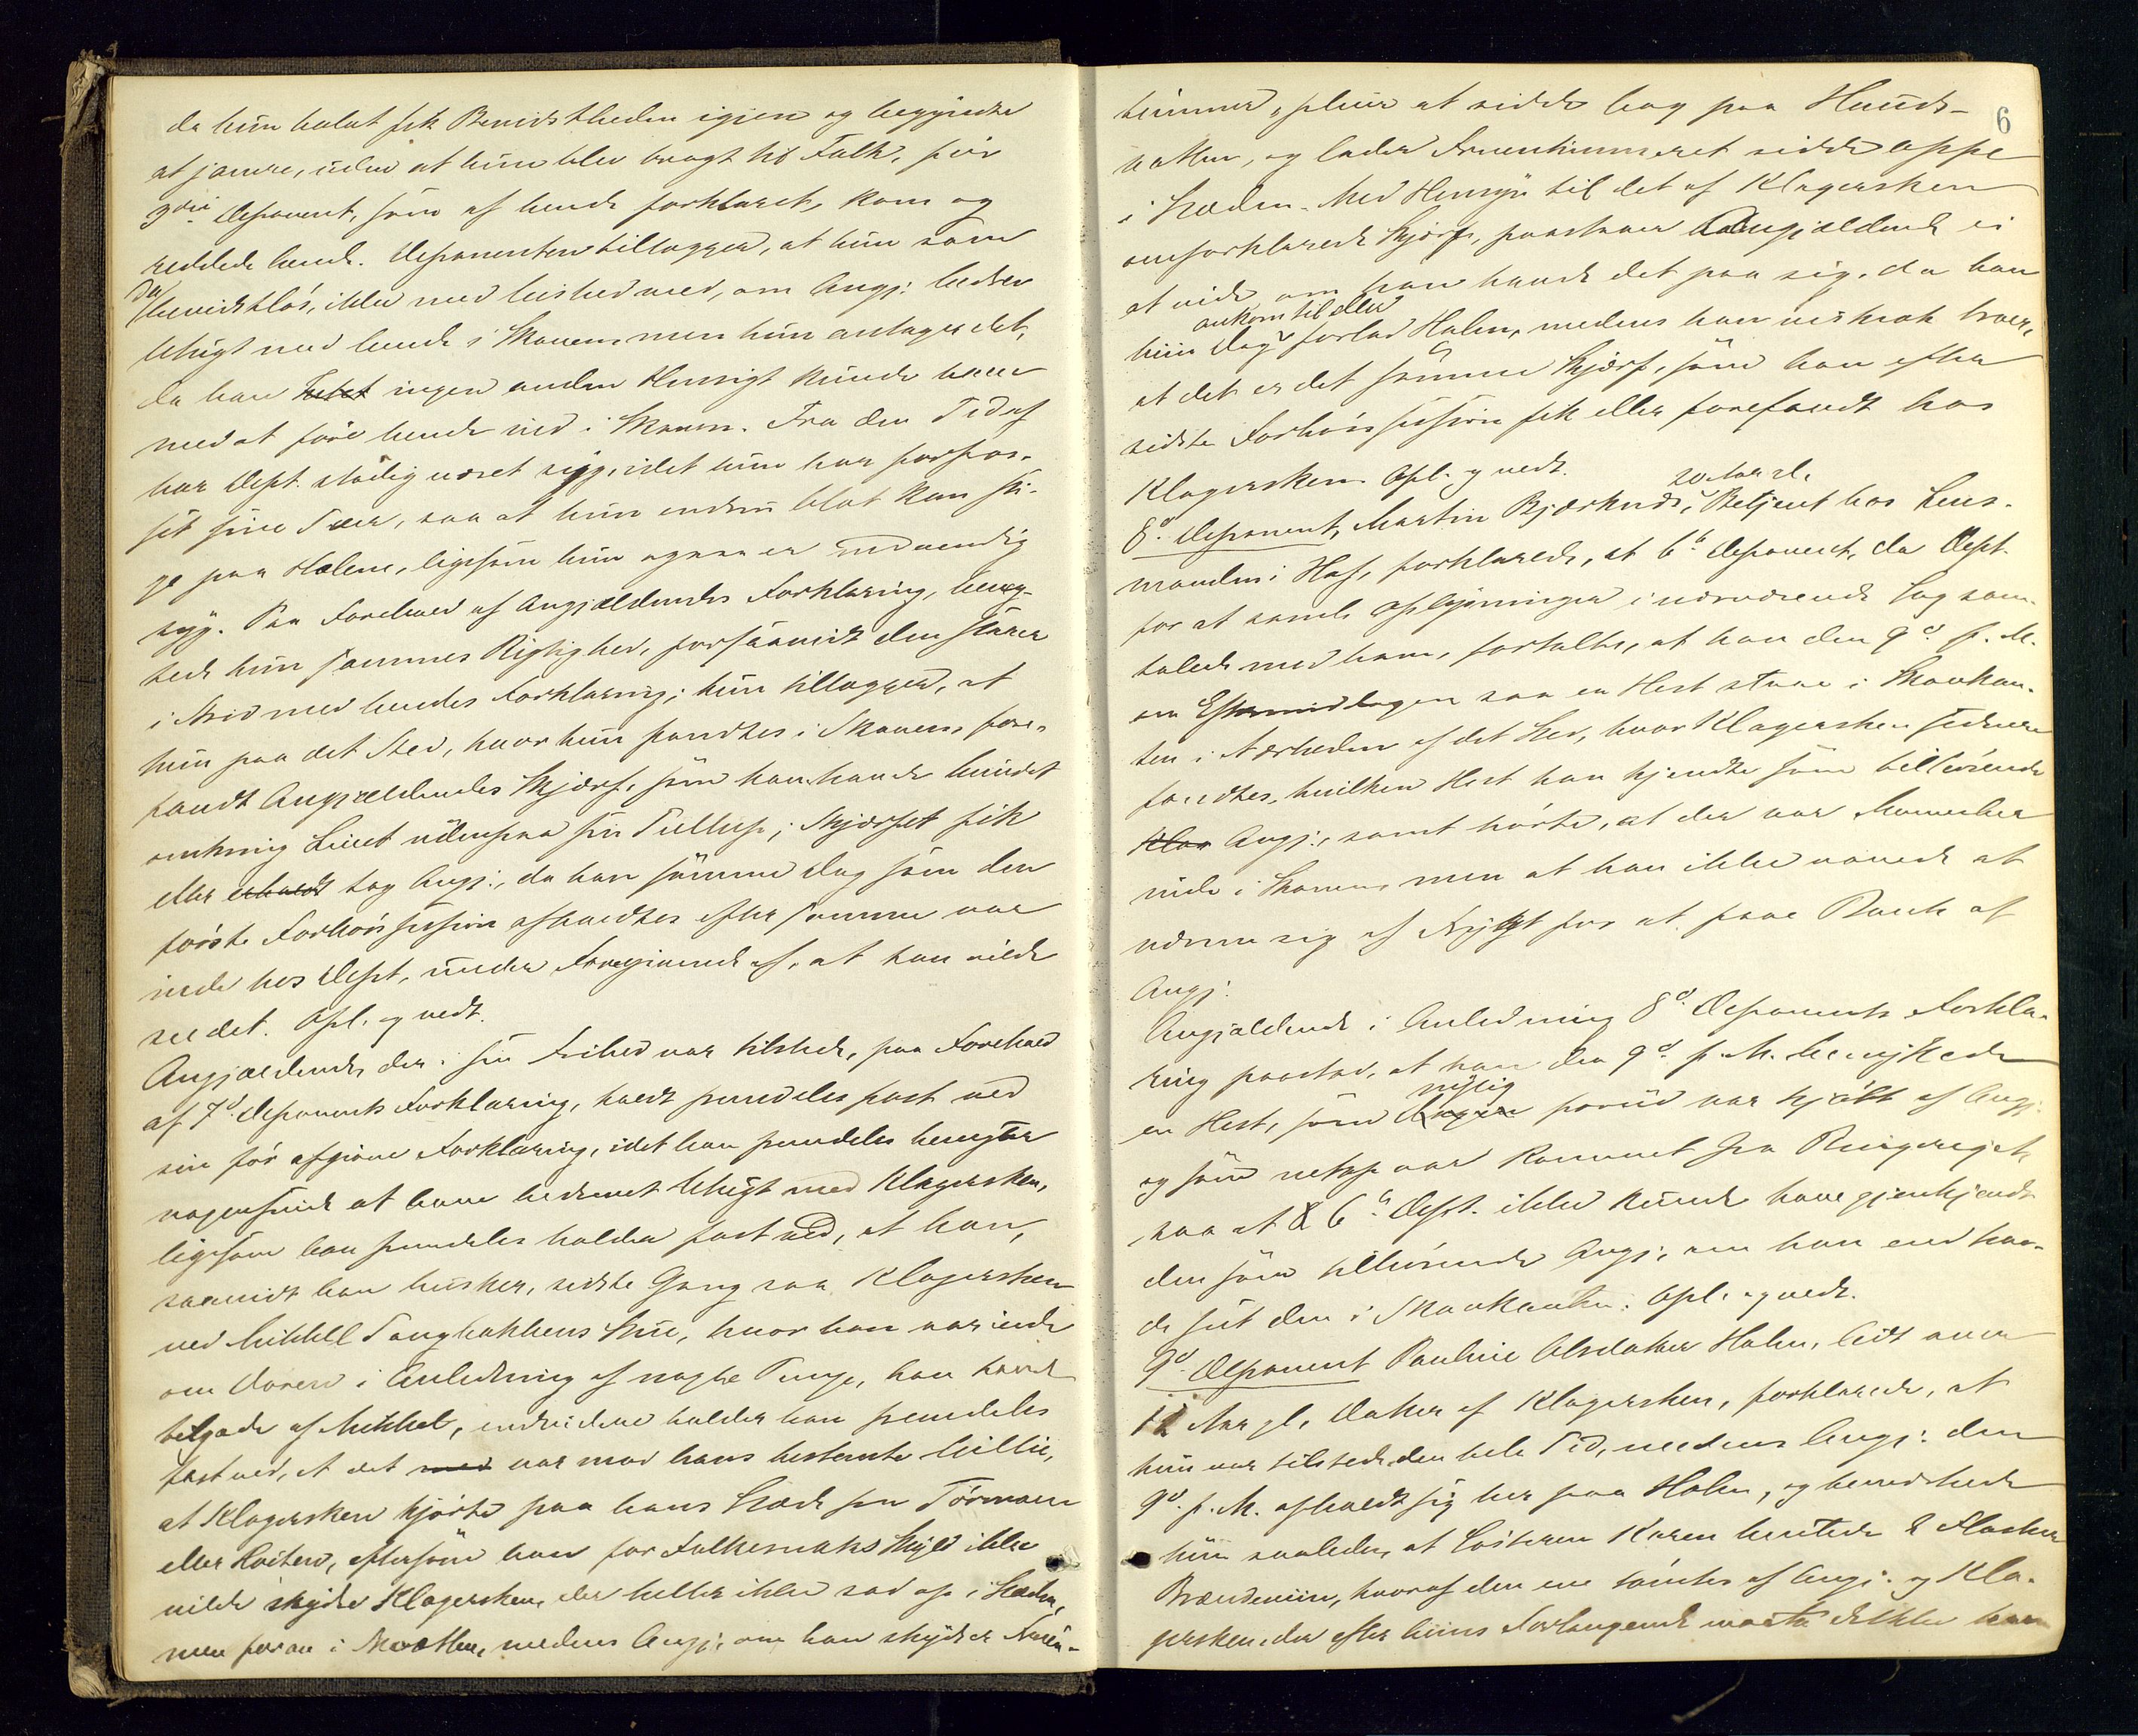 da hun halvt fik Bevidstheden igjen og begyndte
at jamre, uden at hun blev bragt til Folk, før
3die Deponent, som af hende forklaret, kom og
reddede hende. Deponenten tillægger, at hun som
bevidstløs, ikke med vished ved, om Angj: bedrev
Utugt med hende i Skoven, men hun antager det,
da han ingen anden Hensigt kunde have
med at føre hende ind i Skoven. Fra den Tid af
har Dept. stadig været syg, idet hun har forfros-
set sine Tæer, saa at hun endnu blot kan sti-
ge paa Hælene, ligesom hun ogsaa er
syg. Paa Forehold af Angjældendes Forklaring, benæg-
tede hun sammes Rigtighed, forsaavidt den staaer
i Strid med hendes Forklaring; hun tillægger, at
hun paa det Sted, hvor hun fandtes i Skoven, fore-
fandt Angjældendes Skjærf, som han havde bundet
omkring Livet udenpaa sin Tullup; Skjærfet fik
eller erholdt tog Angj:, da han samme Dag som den
første Forhørssession afholdtes efter samme var
inde hos Dept, under Foregivende af, at han vilde
see det. Opl. og vedt.
Angjældende, der i sin Frihed var tilstede, paa Forehold
af 7d. Deponents Forklaring, holdt fremdeles fast ved
sin før afgivne Forklaring, idet han fremdeles benægter
nogensinde at have bedrevet Utugt med Klagersken,
ligesom han fremdeles holder fast ved, at han,
saavidt han husker, sidste Gang saa Klagersken
ved Mikkel Tangbakkens Stue, hvor han var inde
om Døren i Anledning af nogle Penge, han havde
tilgode af Mikkel, endvidere holder han fremdeles
fast ved, at det med var mod hans bestemte Villie,
at Klagersken kjørte paa hans Slæde fra Tørmoen
eller Hoiten, eftersom han for Folkesnaks Skyld ikke
vilde skydse Klagersken, der heller ikke sad op i Slæden,
men foran i Mootten, medens Angj:, om han skydser Fruen-
6
timmer, pleier at sidde bag paa Hunds-
votten, og lader Fruentimmeret sidde oppe
i Slæden. Med Hensyn til det af Klagersken
omforklarede Skjærf, paastaaer Angjældende ei
at vide, om han havde det paa sig, da han
ankom til eller
hiin Dag forlod Holen, medens han
at det er det samme Skjærf, som han efter
sidste Forhørssession fik eller forefandt hos
Klagersken. Opl. og vedt.
20 Aar gl.
8d. Deponent, Martin Bjerknes, Betjent hos Lens-
manden i Hof, forklarede, at 6te Deponent, da Dept.
for at samle Oplysninger i nærværende Sag sam-
talede med ham, fortalte, at han den 9d. f. M.
om Eftermiddagen saa en Hest staae i Skovkan-
ten i Nærheden af det Sted, hvor Klagersken sednere
fandtes, hvilken Hest han kjendte som tilhørende
Klag Angj:, samt hørte, at der var Mennesker
inde i Skoven, men at han ikke vovede at
nærme sig af Frygt for at faae Bank af
Angj:
Angjældende i Anledning 8d. Deponents Forkla-
ring paastod, at han den 9d. f. M. benyttede
nylig
en Hest, som forud var kjøbt af Angj:
og som netop var kommet fra Ringeriget,
saa at 6te Dept. ikke kunde have gjenkjendt
den som tilhørende Angj:, om han end hav-
de seet den i Skovkanten. Opl. og vedt.
9d. Deponent Pauline Olsdatter Holen, lidt over
12 Aar gl., Datter af Klagersken, forklarede, at
hun var tilstede den hele Tid, medens Angj: den
9d. f. M. opholdt sig her paa Holen, og
hun saaledes, at Søsteren Karen hentede 2 Flasker
Brændeviin, hvoraf den ene tømtes af Angj: og Kla-
gersken, der efter hiins Forlangende maatte drikke